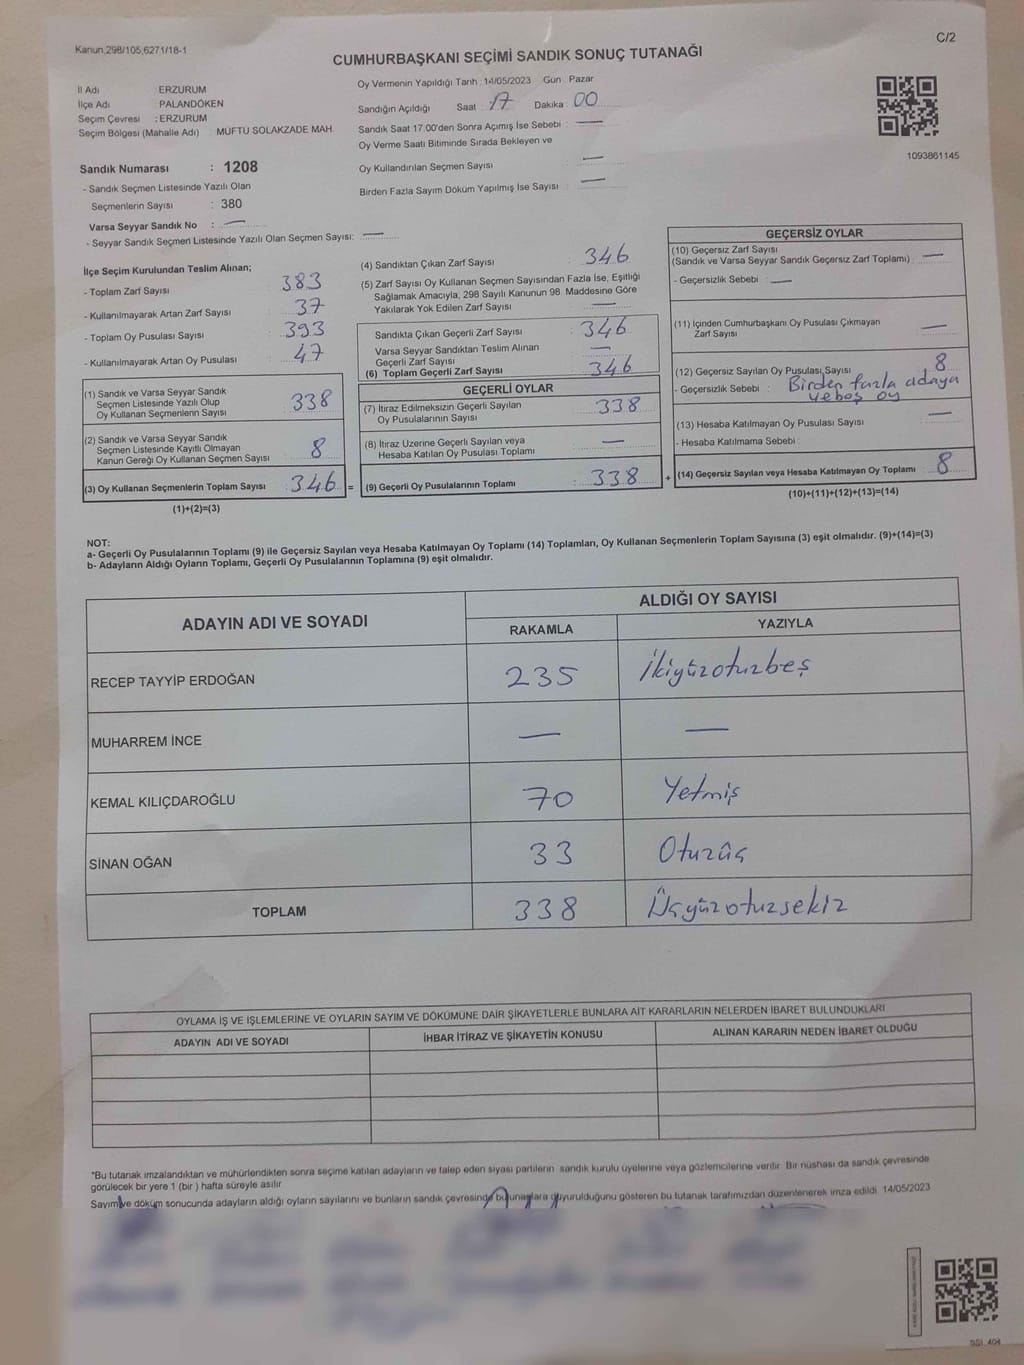 Kanun,298/105,6271/18-1
C/2
CUMHURBAŞKANI SEÇİMİ SANDIK SONUÇ TUTANAĞI
İl Adı : ERZURUM
İlçe Adı : PALANDÖKEN
Seçim Çevresi : ERZURUM
Seçim Bölgesi (Mahalle Adı) : MÜFTÜ SOLAKZADE MAH.
Sandık Numarası : 1208
- Sandık Seçmen Listesinde Yazılı Olan
Seçmenlerin Sayısı : 380
Varsa Seyyar Sandık No : —
- Seyyar Sandık Seçmen Listesinde Yazılı Olan Seçmen Sayısı: —
Oy Vermenin Yapıldığı Tarih : 14/05/2023 Gün : Pazar
Sandığın Açıldığı Saat 17 Dakika 00
Sandık Saat 17:00'den Sonra Açımış İse Sebebi : —
Oy Verme Saati Bitiminde Sırada Bekleyen ve
Oy Kullandırılan Seçmen Sayısı : —
Birden Fazla Sayım Döküm Yapılmış İse Sayısı : —
1093861145
İlçe Seçim Kurulundan Teslim Alınan;
- Toplam Zarf Sayısı : 383
- Kullanılmayarak Artan Zarf Sayısı : 37
- Toplam Oy Pusulası Sayısı : 393
- Kullanılmayarak Artan Oy Pusulası : 47
(1) Sandık ve Varsa Seyyar Sandık
Seçmen Listesinde Yazılı Olup
Oy Kullanan Seçmenlerin Sayısı : 338
(2) Sandık ve Varsa Seyyar Sandık
Seçmen Listesinde Kayıtlı Olmayan
Kanun Gereği Oy Kullanan Seçmen Sayısı : 8
(3) Oy Kullanan Seçmenlerin Toplam Sayısı : 346 =
(1)+(2)=(3)
(4) Sandıktan Çıkan Zarf Sayısı : 346
(5) Zarf Sayısı Oy Kullanan Seçmen Sayısından Fazla İse, Eşitliği
Sağlamak Amacıyla; 298 Sayılı Kanunun 98. Maddesine Göre
Yakılarak Yok Edilen Zarf Sayısı : —
Sandıkta Çıkan Geçerli Zarf Sayısı : 346
Varsa Seyyar Sandıktan Teslim Alınan
Geçerli Zarf Sayısı : —
(6) Toplam Geçerli Zarf Sayısı : 346
GEÇERLİ OYLAR
(7) İtiraz Edilmeksizin Geçerli Sayılan
Oy Pusulalarının Sayısı : 338
(8) İtiraz Üzerine Geçerli Sayılan veya
Hesaba Katılan Oy Pusulası Toplamı : —
(9) Geçerli Oy Pusulalarının Toplamı : 338 +
GEÇERSİZ OYLAR
(10) Geçersiz Zarf Sayısı
(Sandık ve Varsa Seyyar Sandık Geçersiz Zarf Toplamı) : —
- Geçersizlik Sebebi : —
(11) İçinden Cumhurbaşkanı Oy Pusulası Çıkmayan
Zarf Sayısı : —
(12) Geçersiz Sayılan Oy Pusulası Sayısı : 8
- Geçersizlik Sebebi : Birden fazla adaya
ve boş oy
(13) Hesaba Katılmayan Oy Pusulası Sayısı : —
- Hesaba Katılmama Sebebi :
(14) Geçersiz Sayılan veya Hesaba Katılmayan Oy Toplamı : 8
(10)+(11)+(12)+(13)=(14)
NOT:
a- Geçerli Oy Pusulalarının Toplamı (9) ile Geçersiz Sayılan veya Hesaba Katılmayan Oy Toplamı (14) Toplamları, Oy Kullanan Seçmenlerin Toplam Sayısına (3) eşit olmalıdır. (9)+(14)=(3)
b- Adayların Aldığı Oyların Toplamı, Geçerli Oy Pusulalarının Toplamına (9) eşit olmalıdır.
ADAYIN ADI VE SOYADI
ALDIĞI OY SAYISI
RAKAMLA YAZIYLA
RECEP TAYYİP ERDOĞAN 235 İkiyüzotuzbeş
MUHARREM İNCE — —
KEMAL KILIÇDAROĞLU 70 Yetmiş
SİNAN OĞAN 33 Otuzüç
TOPLAM 338 Üçyüzotuzsekiz
OYLAMA İŞ VE İŞLEMLERİNE VE OYLARIN SAYIM VE DÖKÜMÜNE DAİR ŞİKAYETLERLE BUNLARA AİT KARARLARIN NELERDEN İBARET BULUNDUKLARI
ADAYIN ADI VE SOYADI İHBAR İTİRAZ VE ŞİKAYETİN KONUSU ALINAN KARARIN NEDEN İBARET OLDUĞU
*Bu tutanak imzalandıktan ve mühürlendikten sonra seçime katılan adayların ve talep eden siyasi partilerin sandık kurulu üyelerine veya gözlemcilerine verilir. Bir nüshası da sandık çevresinde
görülecek bir yere 1 (bir ) hafta süreyle asılır
Sayım ve döküm sonucunda adayların aldığı oyların sayılarını ve bunların sandık çevresinde bulunanlara duyurulduğunu gösteren bu tutanak tarafımızdan düzenlenerek imza edildi. 14/05/2023